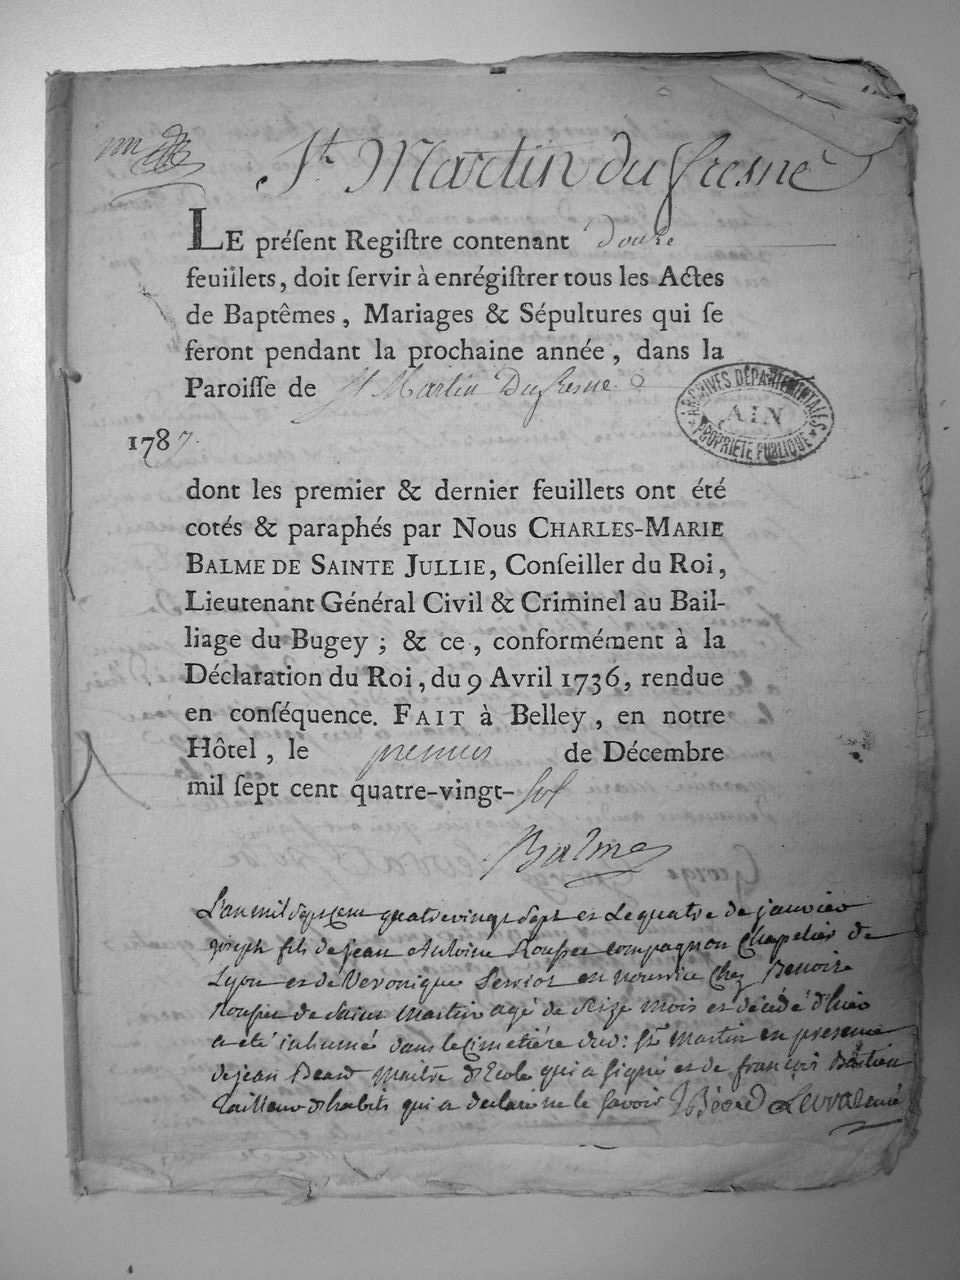 St. Martin du fresne
LE préſent Regiſtre contenant Douze
feuillets, doit ſervir à enrégiſtrer tous les Actes
de Baptêmes, Mariages & Sépultures qui ſe
feront pendant la prochaine année, dans la
Paroiſſe de St Martin Dufresne
ARCHIVES DÉPARTEMENTALES
AIN
PROPRIÉTÉ PUBLIQUE
1787.
dont les premier & dernier feuillets ont été
cotés & paraphés par Nous CHARLES-MARIE
BALME DE SAINTE JULLIE, Conſeiller du Roi,
Lieutenant Général Civil & Criminel au Bail-
liage du Bugey ; & ce, conformément à la
Déclaration du Roi, du 9 Avril 1736, rendue
en conſéquence. FAIT à Belley, en notre
Hôtel, le premier de Décembre
mil ſept cent quatre-vingt-six
Balme
L'an mil sept cent quatre vingt sept et le quatre de janvier
joseph fils de jean Antoine compagnon Chapelier de
Lyon et de Veronique en nourrice chez Benoit
de Saint Martin agé de seize mois et décédé d'hier
a été inhumé dans le cimetière dud: St Martin en presence
de jean Beard Maitre d'Ecole qui a signé et de françois
Tailleur d'habits qui a declaré ne le savoir JBéard curé